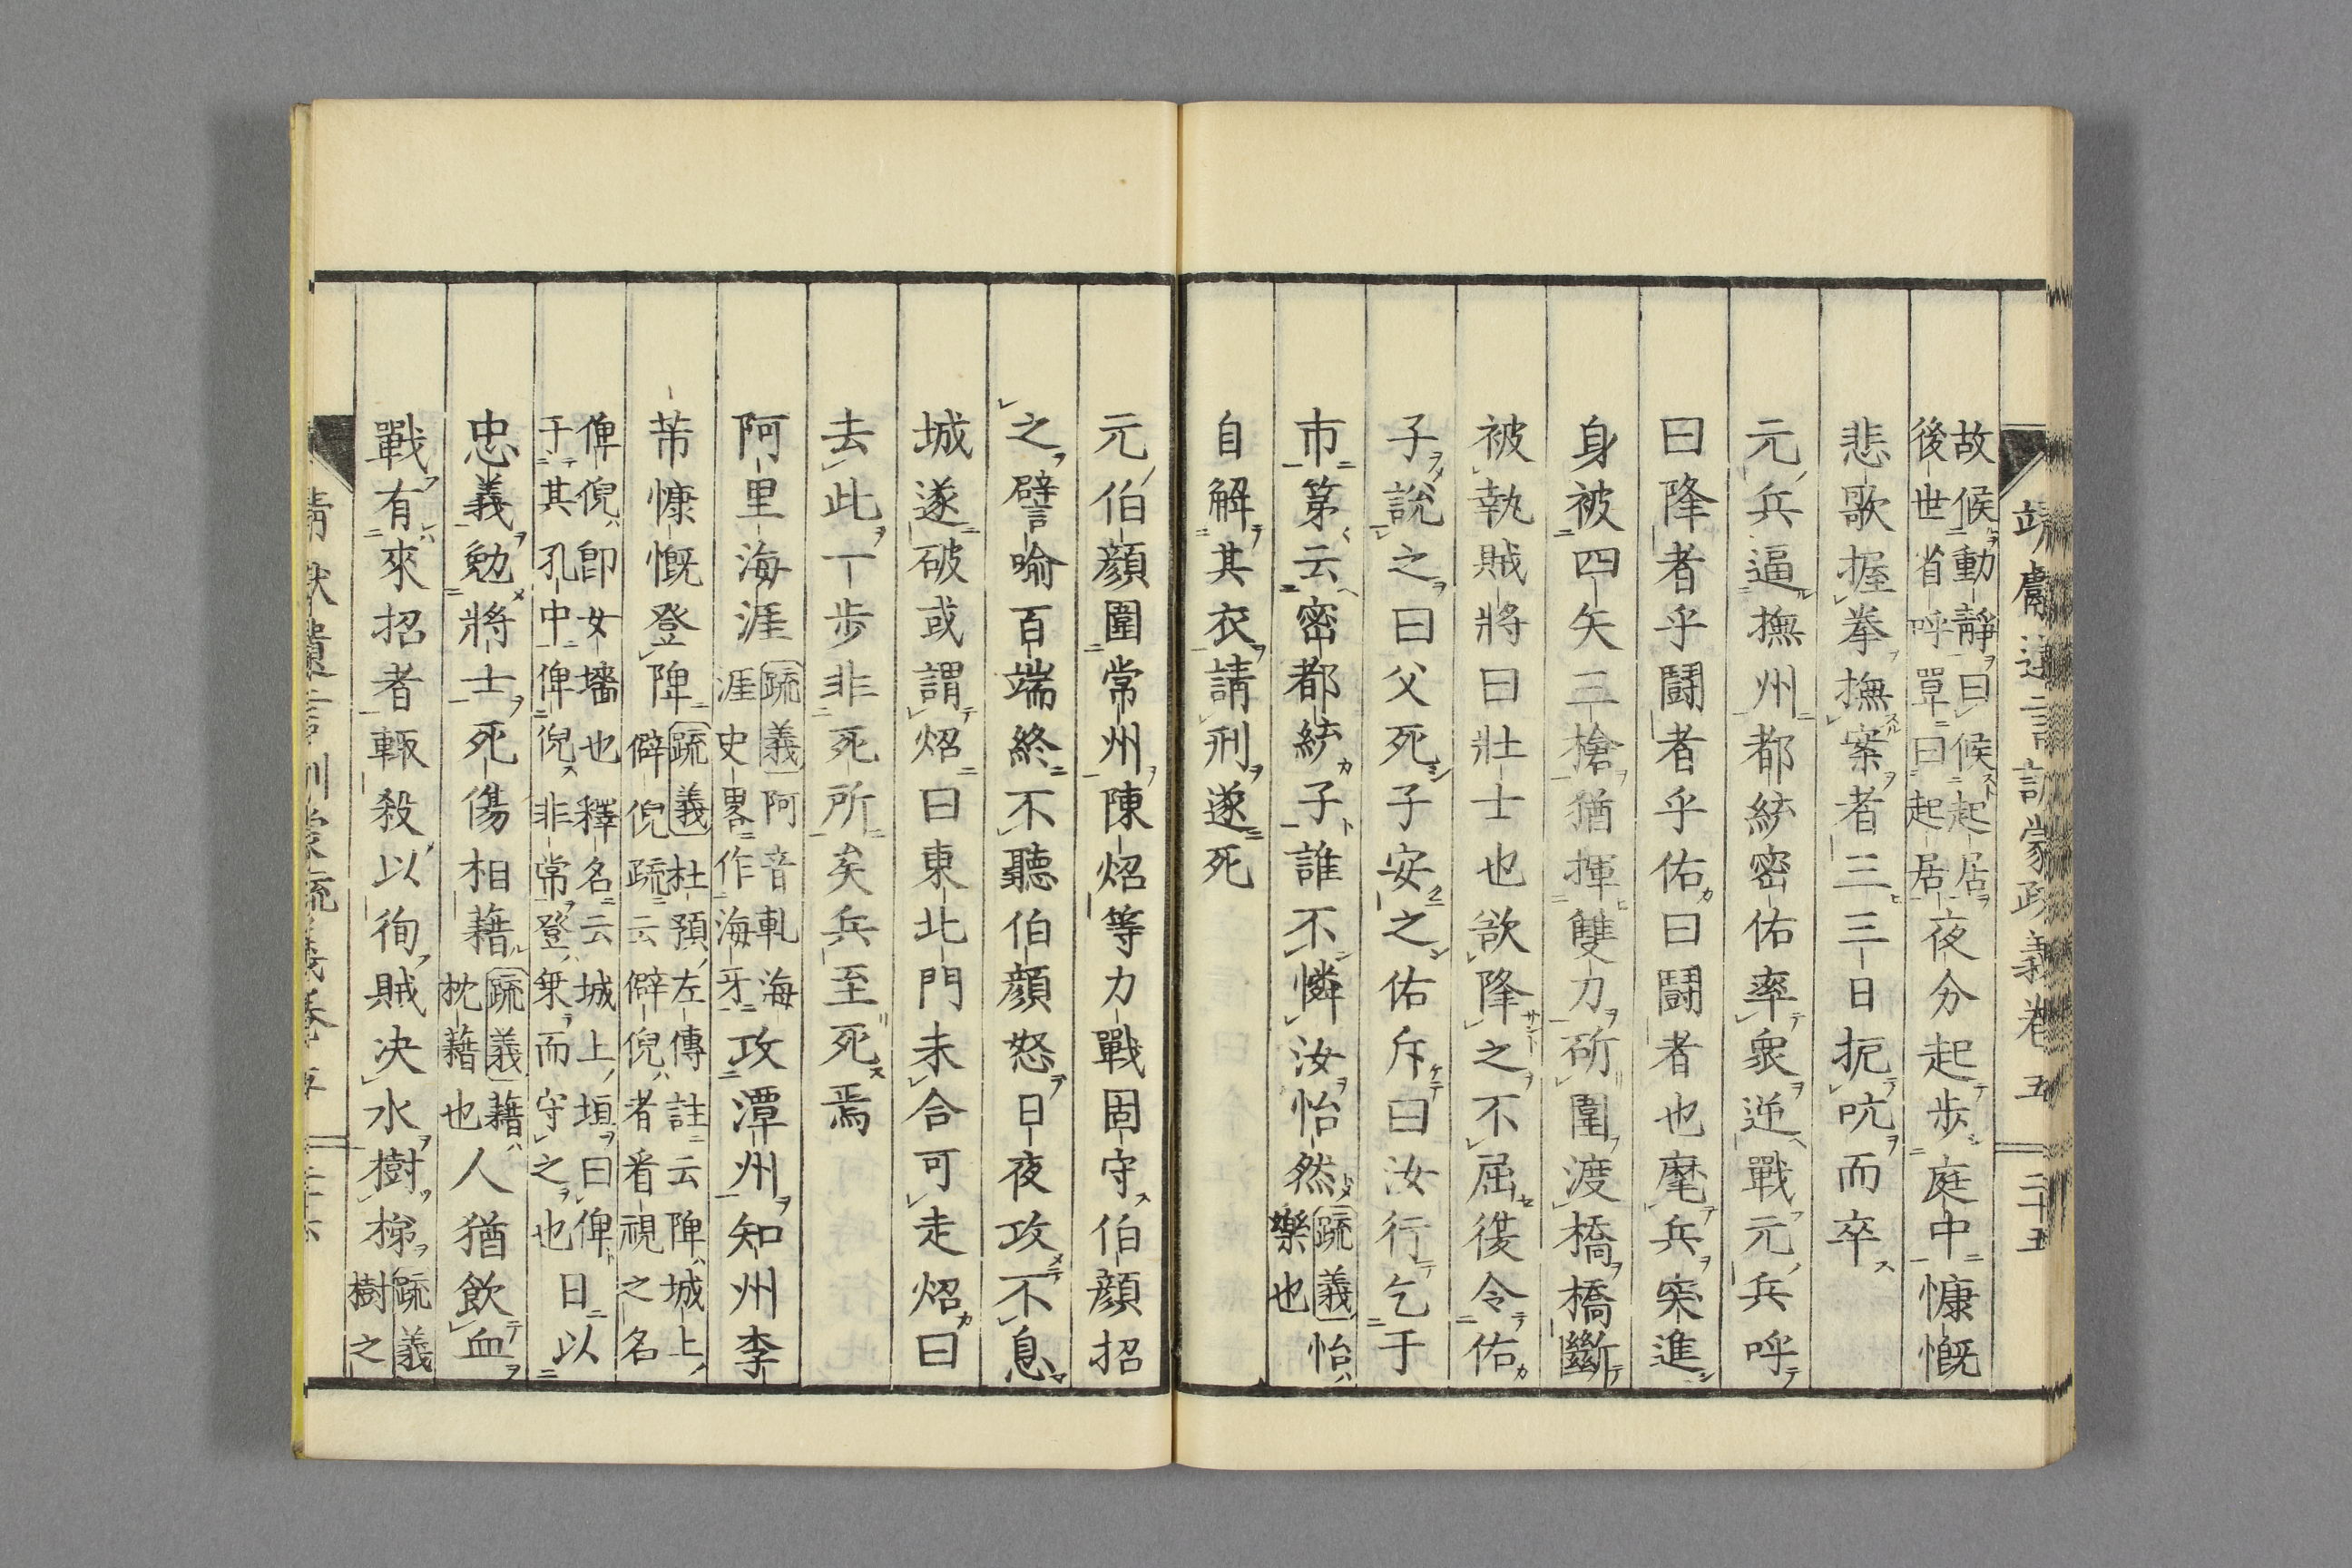 故候動靜曰候起居
後世省呼單曰起居夜分起步庭中慷慨
悲歌握拳撫案者三三日扼吭而卒
元兵逼撫州都統密佑率衆逆戰元兵呼
曰降者乎鬪者乎佑曰鬪者也麾兵突進
身被四矢三槍猶揮雙刀斫圍渡橋橋斷
被執賊將曰壯士也欲降之不屈復令佑
子說之曰父死子安之佑斥曰汝行乞于
市第云密都統子誰不憐汝怡然疏義怡
樂也
自解其衣請刑遂死
元伯顏圍常州陳炤等力戰固守伯顏招
之譬喻百端終不聽伯顏怒日夜攻不息
城遂破或謂炤曰東北門未合可走炤曰
去此一步非死所矣兵至死焉
阿里海涯疏義阿音軋海
涯史畧作海牙攻潭州知州李
芾慷慨登陴疏義杜預左傳註云陴城上
僻倪疏云僻倪者看視之名
俾倪卽女墻也釋名云城上垣曰俾
于其孔中俾倪非常登乗而守之也日以
忠義勉將士死傷相藉疏義藉
枕藉也人猶飲血
戰有來招者輙殺以徇賊决水樹梯疏義
樹之